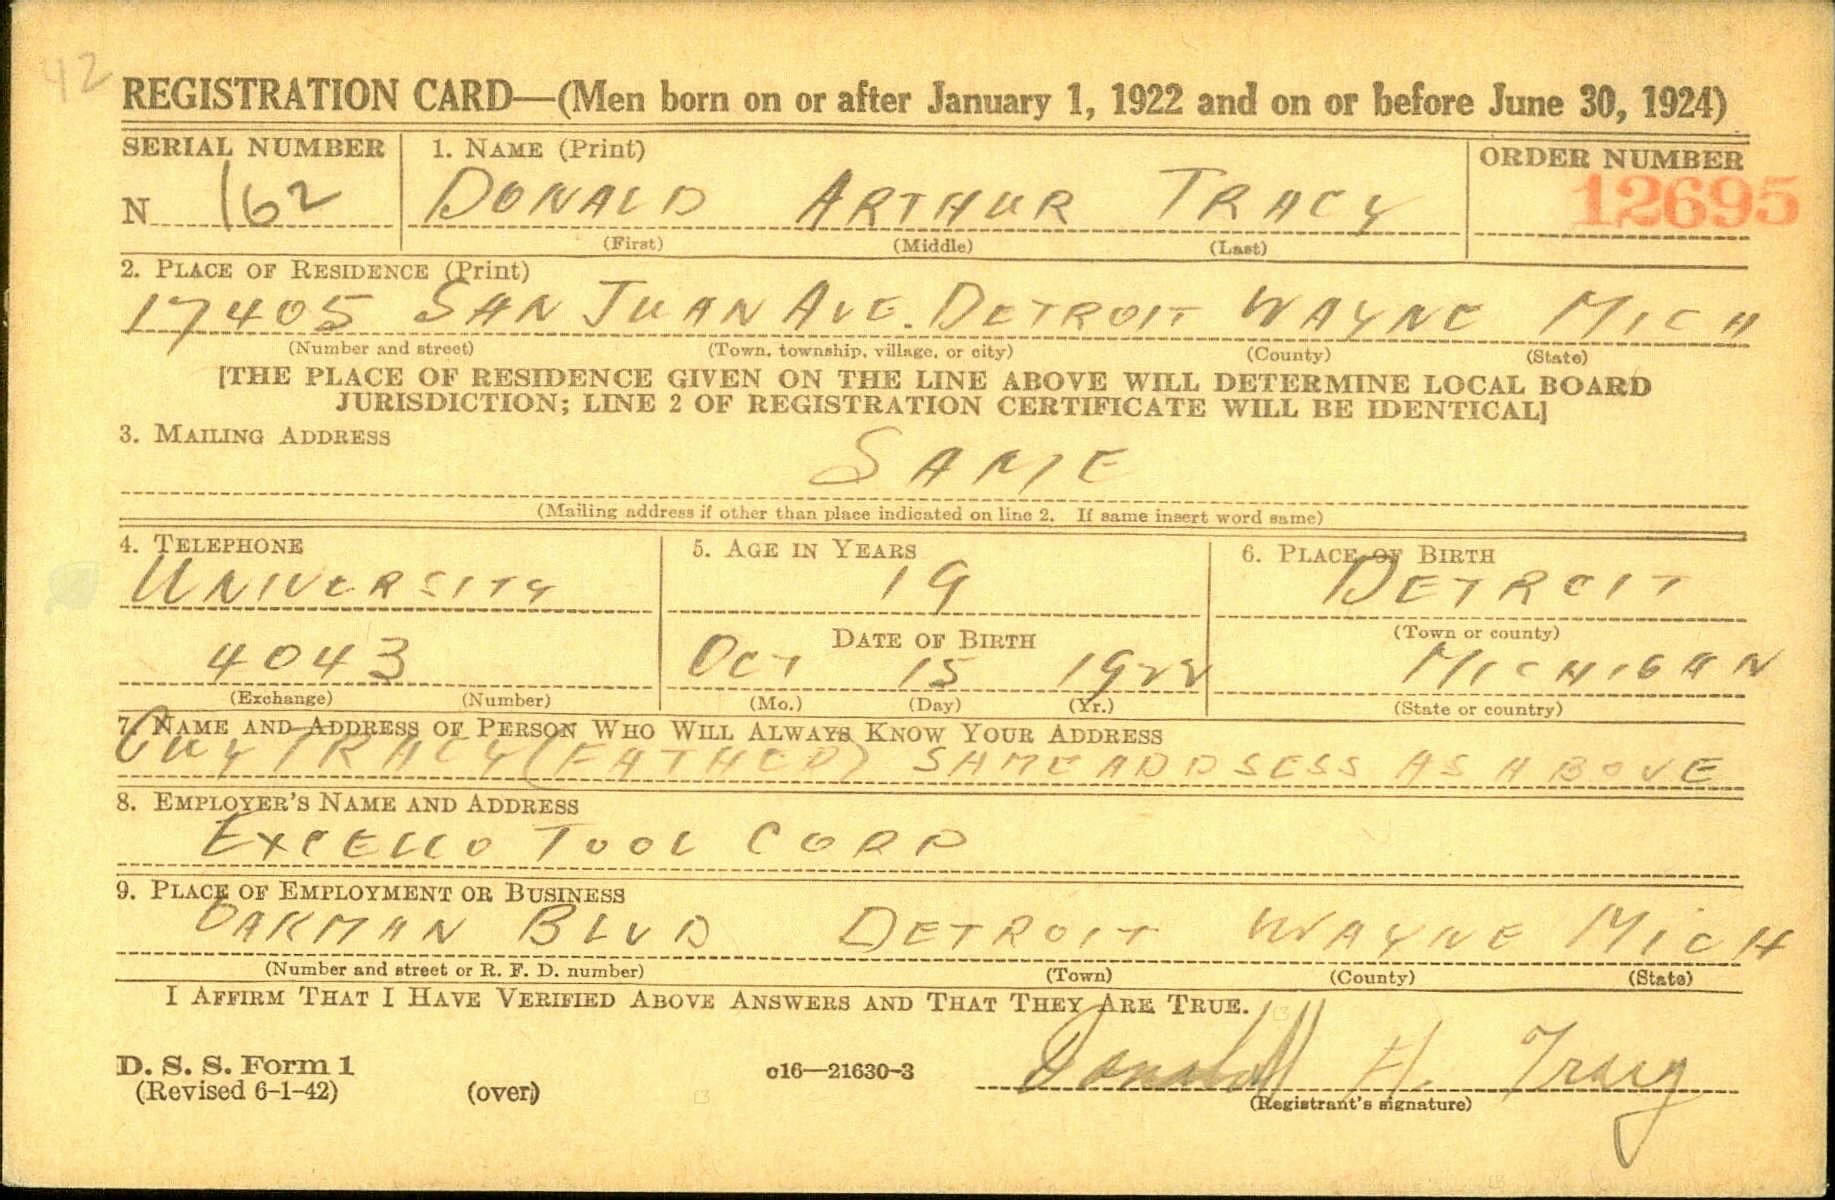 42
REGISTRATION CARD—(Men born on or after January 1, 1922 and on or before June 30, 1924)
SERIAL NUMBER 1. NAME (Print) ORDER NUMBER
N 162 DONALD ARTHUR TRACY 12695
(First) (Middle) (Last)
2. PLACE OF RESIDENCE (Print)
17405 SAN JUAN AVE. DETROIT WAYNE MICH
(Number and street) (Town, township, village, or city) (County) (State)
[THE PLACE OF RESIDENCE GIVEN ON THE LINE ABOVE WILL DETERMINE LOCAL BOARD
JURISDICTION; LINE 2 OF REGISTRATION CERTIFICATE WILL BE IDENTICAL]
3. MAILING ADDRESS
SAME
(Mailing address if other than place indicated on line 2. If same insert word same)
4. TELEPHONE 5. AGE IN YEARS 6. PLACE OF BIRTH
UNIVERSITY 19 DETROIT
DATE OF BIRTH (Town or county)
4043 OCT 15 1922 MICHIGAN
(Exchange) (Number) (Mo.) (Day) (Yr.) (State or country)
7. NAME AND ADDRESS OF PERSON WHO WILL ALWAYS KNOW YOUR ADDRESS
GUY TRACY (FATHER) SAME ADDSESS AS ABOVE
8. EMPLOYER'S NAME AND ADDRESS
EXCELLO TOOL CORP
9. PLACE OF EMPLOYMENT OR BUSINESS
OAKMAN BLVD DETROIT WAYNE MICH
(Number and street or R. F. D. number) (Town) (County) (State)
I AFFIRM THAT I HAVE VERIFIED ABOVE ANSWERS AND THAT THEY ARE TRUE.
D. S. S. Form 1
(Revised 6-1-42) (over) c16—21630-3 Donald A. Tracy
(Registrant's signature)